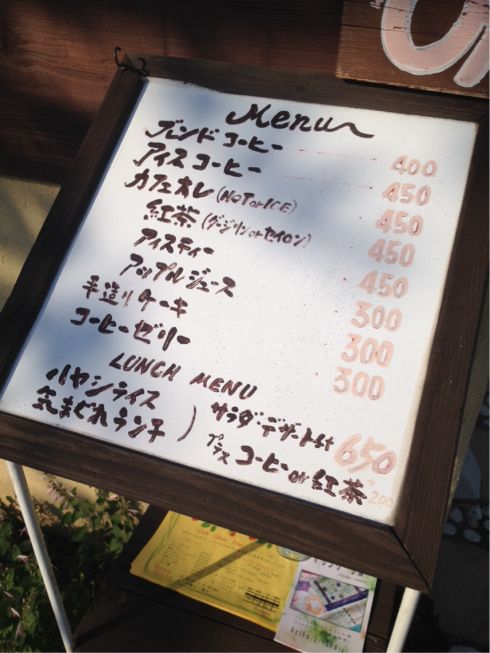 Menu
ブレンドコーヒー 400
アイスコーヒー 450
カフェオレ (HOT or ICE) 450
紅茶 (ダージリン or セイロン) 450
アイスティー 450
アップルジュース 300
手造りケーキ 300
コーヒーゼリー 300
LUNCH MENU
ハヤシライス
気まぐれランチ ) サラダ・デザート付 650
プラス コーヒー or 紅茶 +200